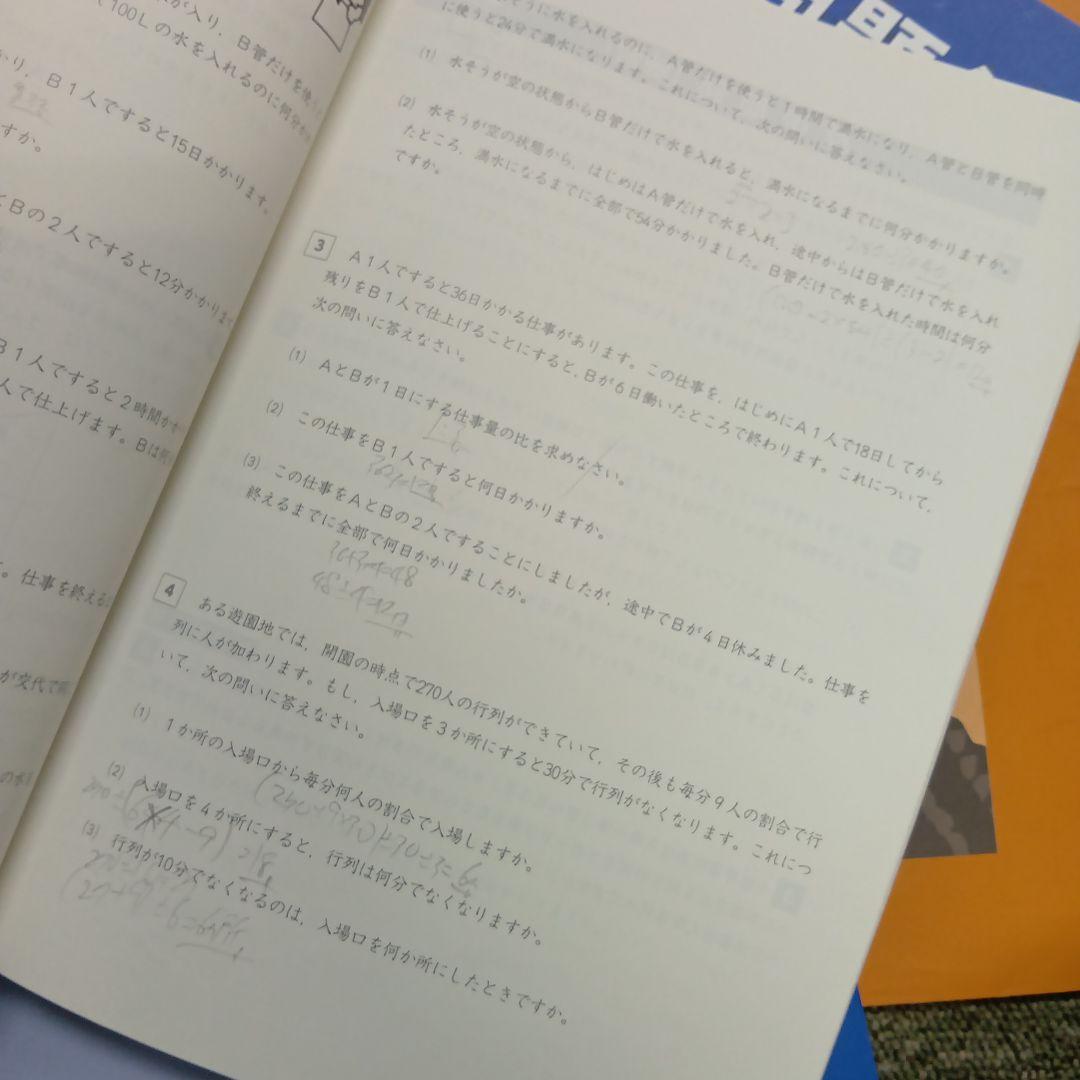 が入り，B管だけを使
100Lの水を入れるのに何分か
B1人ですると15日かかります。
すか。
とBの2人ですると12分かかりま
B1人ですると2時間か
人で仕上げます。Bは何
。仕事を終える
が交代で
そうに水を入れるのに，A管だけを使うと1時間で満水になり，A管とB管を同時
に使うと24分で満水になります。これについて，次の問いに答えなさい。
(1) 水そうが空の状態からB管だけで水を入れると，満水になるまでに何分かかりますか。
(2) 水そうが空の状態から，はじめはA管だけで水を入れ，途中からはB管だけで水を入れ
たところ，満水になるまでに全部で54分かかりました。B管だけで水を入れた時間は何分
ですか。
3 A1人ですると36日かかる仕事があります。この仕事を，はじめにA1人で18日してから
残りをB1人で仕上げることにすると，Bが6日働いたところで終わります。これについて，
次の問いに答えなさい。
(1) AとBが1日にする仕事量の比を求めなさい。
(2) この仕事をB1人ですると何日かかりますか。
(3) この仕事をAとBの2人ですることにしましたが，途中でBが4日休みました。仕事を
終えるまでに全部で何日かかりましたか。
4 ある遊園地では，開園の時点で270人の行列ができていて，その後も毎分9人の割合で行
列に人が加わります。もし，入場口を3か所にすると30分で行列がなくなります。これにつ
いて，次の問いに答えなさい。
(1) 1か所の入場口から毎分何人の割合で入場しますか。
(2) 入場口を4か所にすると，行列は何分でなくなりますか。
(3) 行列が10分でなくなるのは，入場口を何か所にしたときですか。